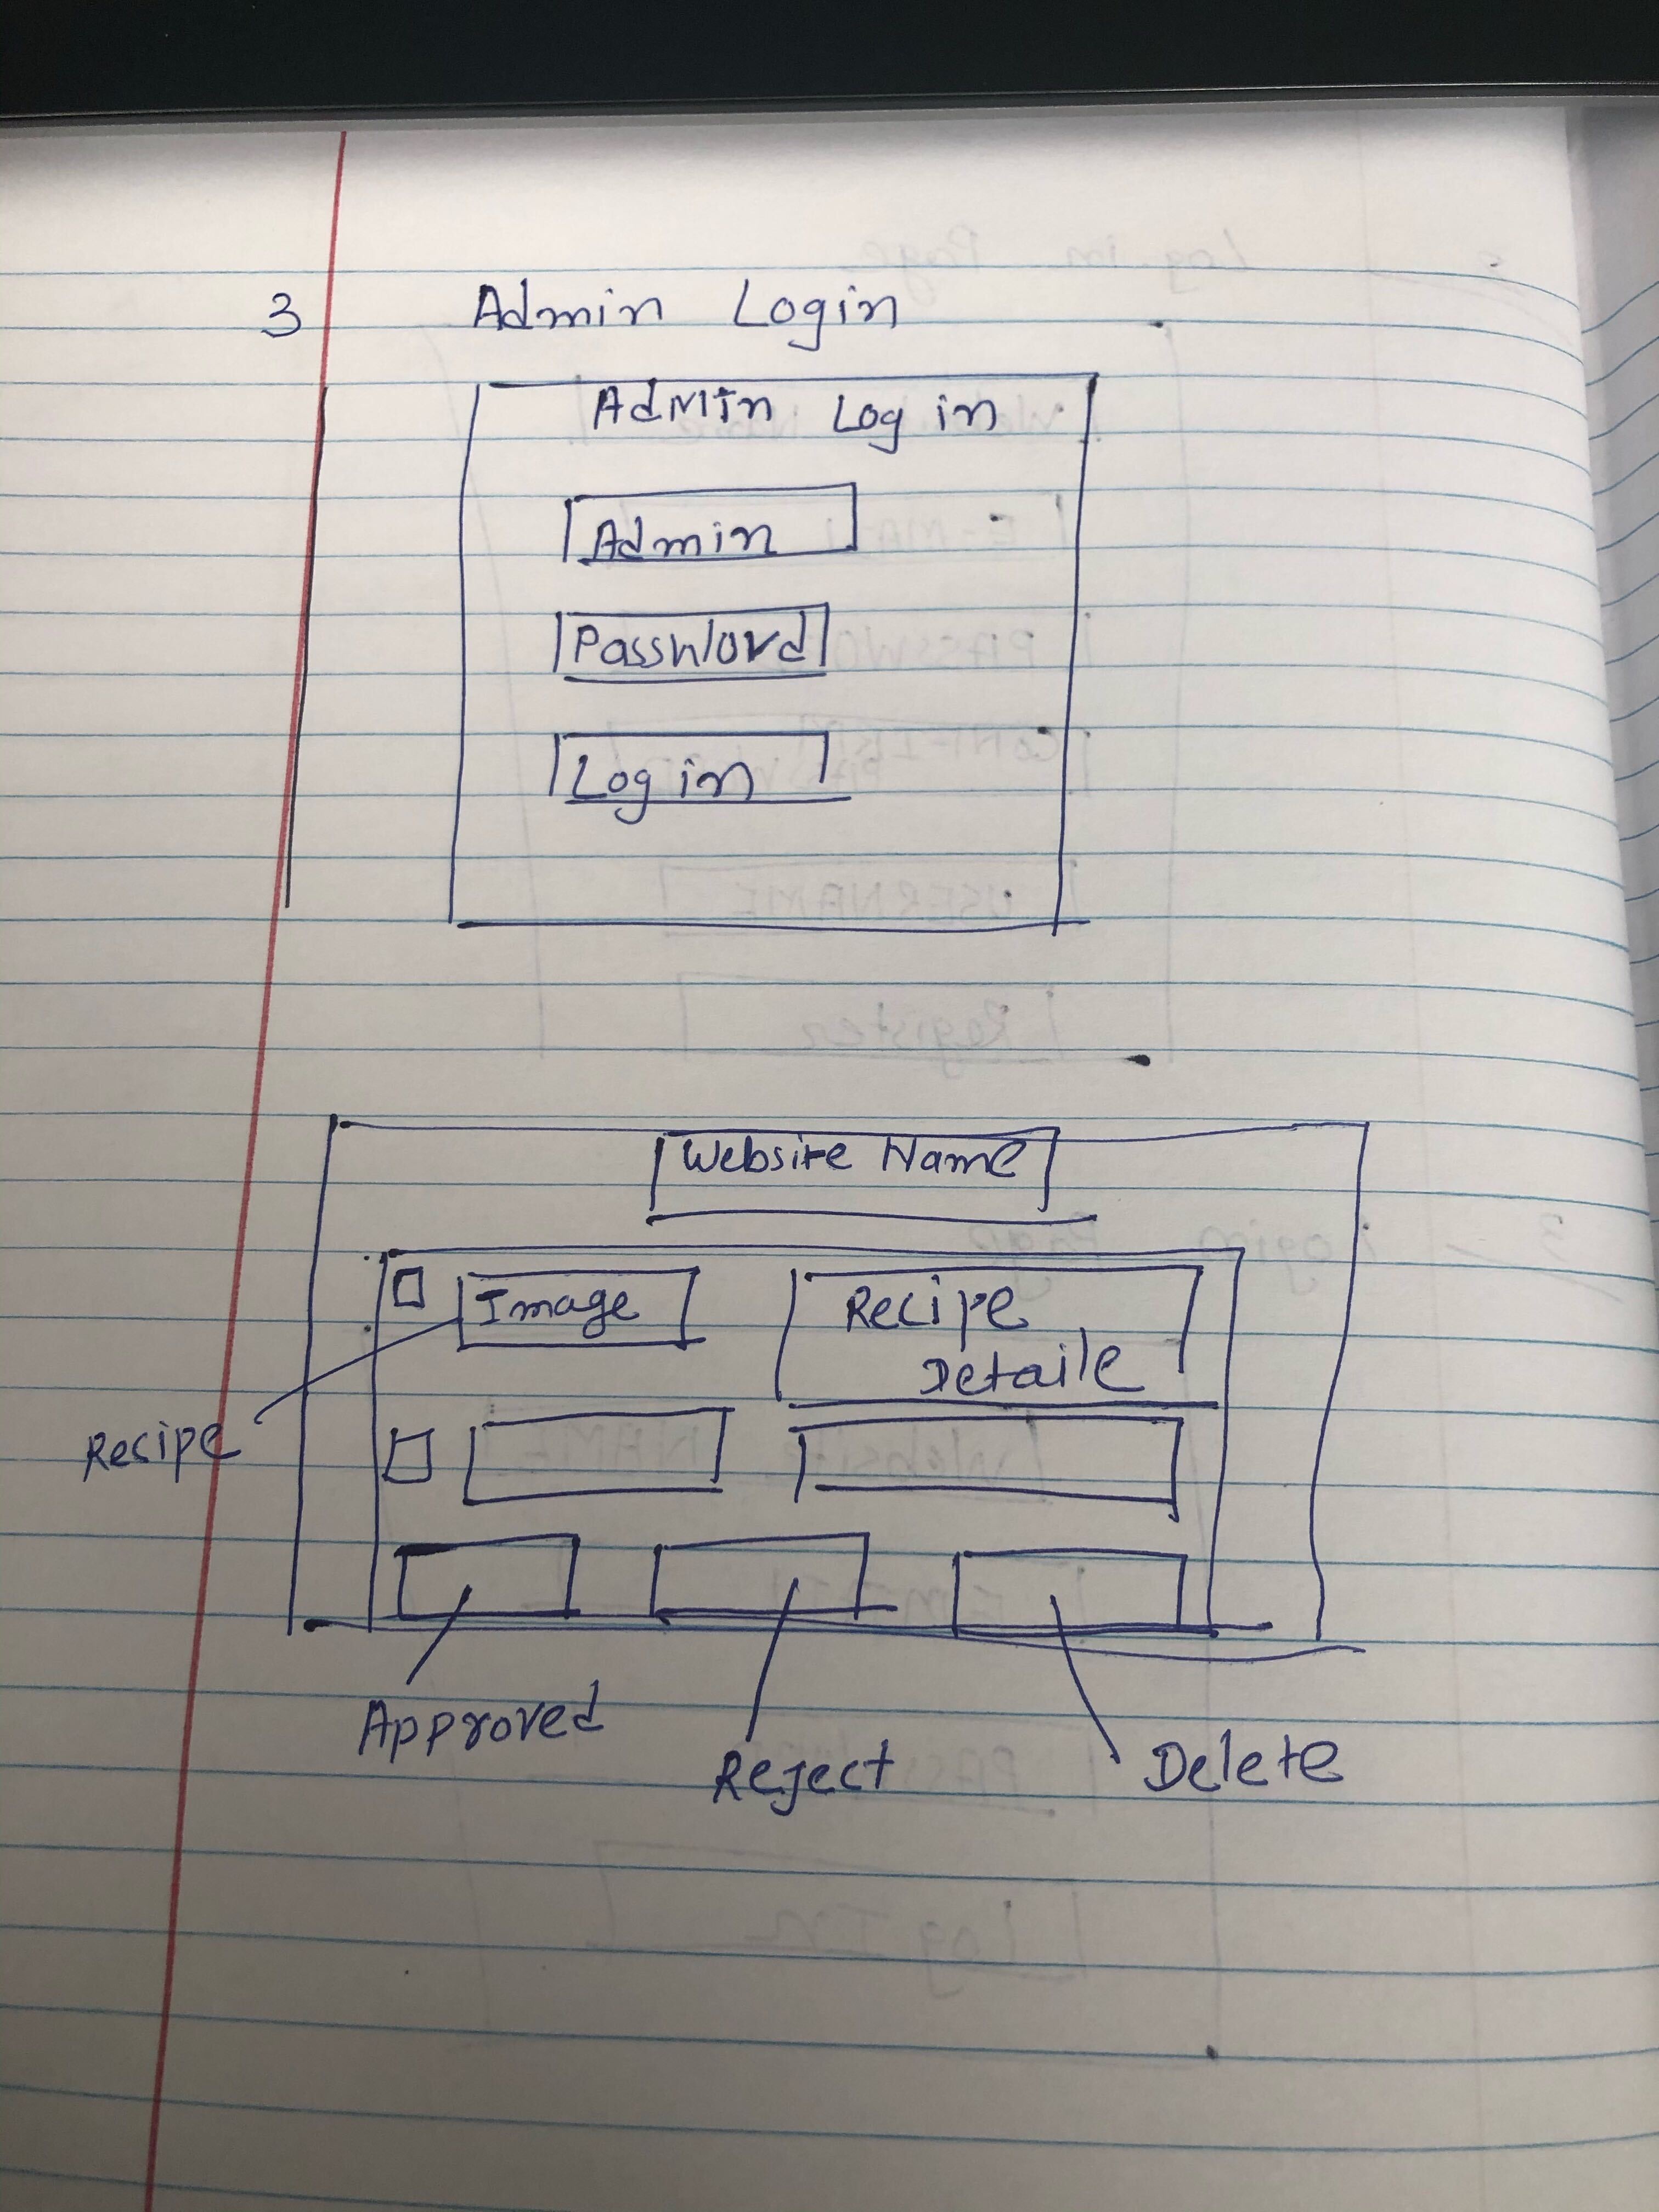 3 Admin Login
Admin Log in
Admin
Password
Log in
Website Name
Image
Recipe
Detaile
Recipe
Approved
Reject
Delete